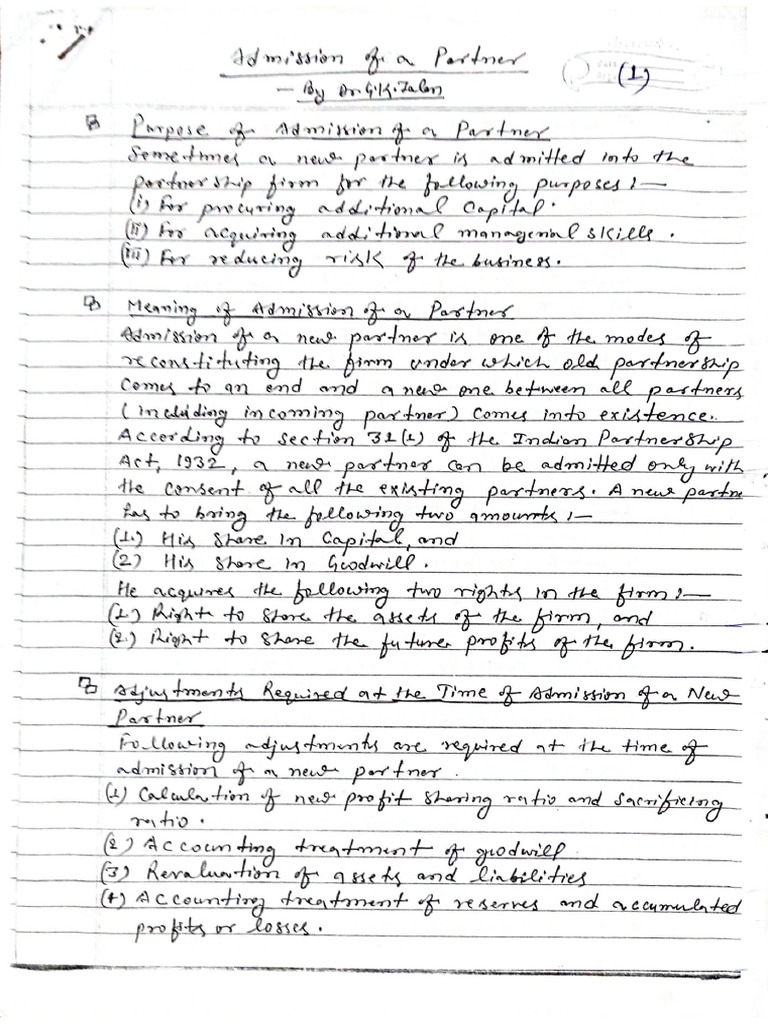 Admission of a Partner
(1)
- By Dr. G.K.
Purpose of Admission of a Partner
Sometimes a new partner is admitted into the
partnership firm for the following purposes :-
(i) For procuring additional Capital.
(ii) For acquiring additional managerial skills.
(iii) For reducing risk of the business.
Meaning of Admission of a Partner
Admission of a new partner is one of the modes of
reconstituting the firm under which old partnership
comes to an end and a new one between all partners
(including incoming partner) comes into existence.
According to section 31(1) of the Indian Partnership
Act, 1932, a new partner can be admitted only with
the consent of all the existing partners. A new partne
has to bring the following two amounts :-
(1.) His share in Capital, and
(2) His share in Goodwill.
He acquires the following two rights in the firm :-
(1.) Right to share the assets of the firm, and
(2.) Right to share the future profits of the firm.
Adjustments Required at the Time of Admission of a New
Partner
Following adjustments are required at the time of
admission of a new partner.
(1) Calculation of new profit sharing ratio and sacrificing
ratio.
(2) Accounting treatment of goodwill.
(3) Revaluation of assets and liabilities
(4) Accounting treatment of reserves and accumulated
profits or losses.